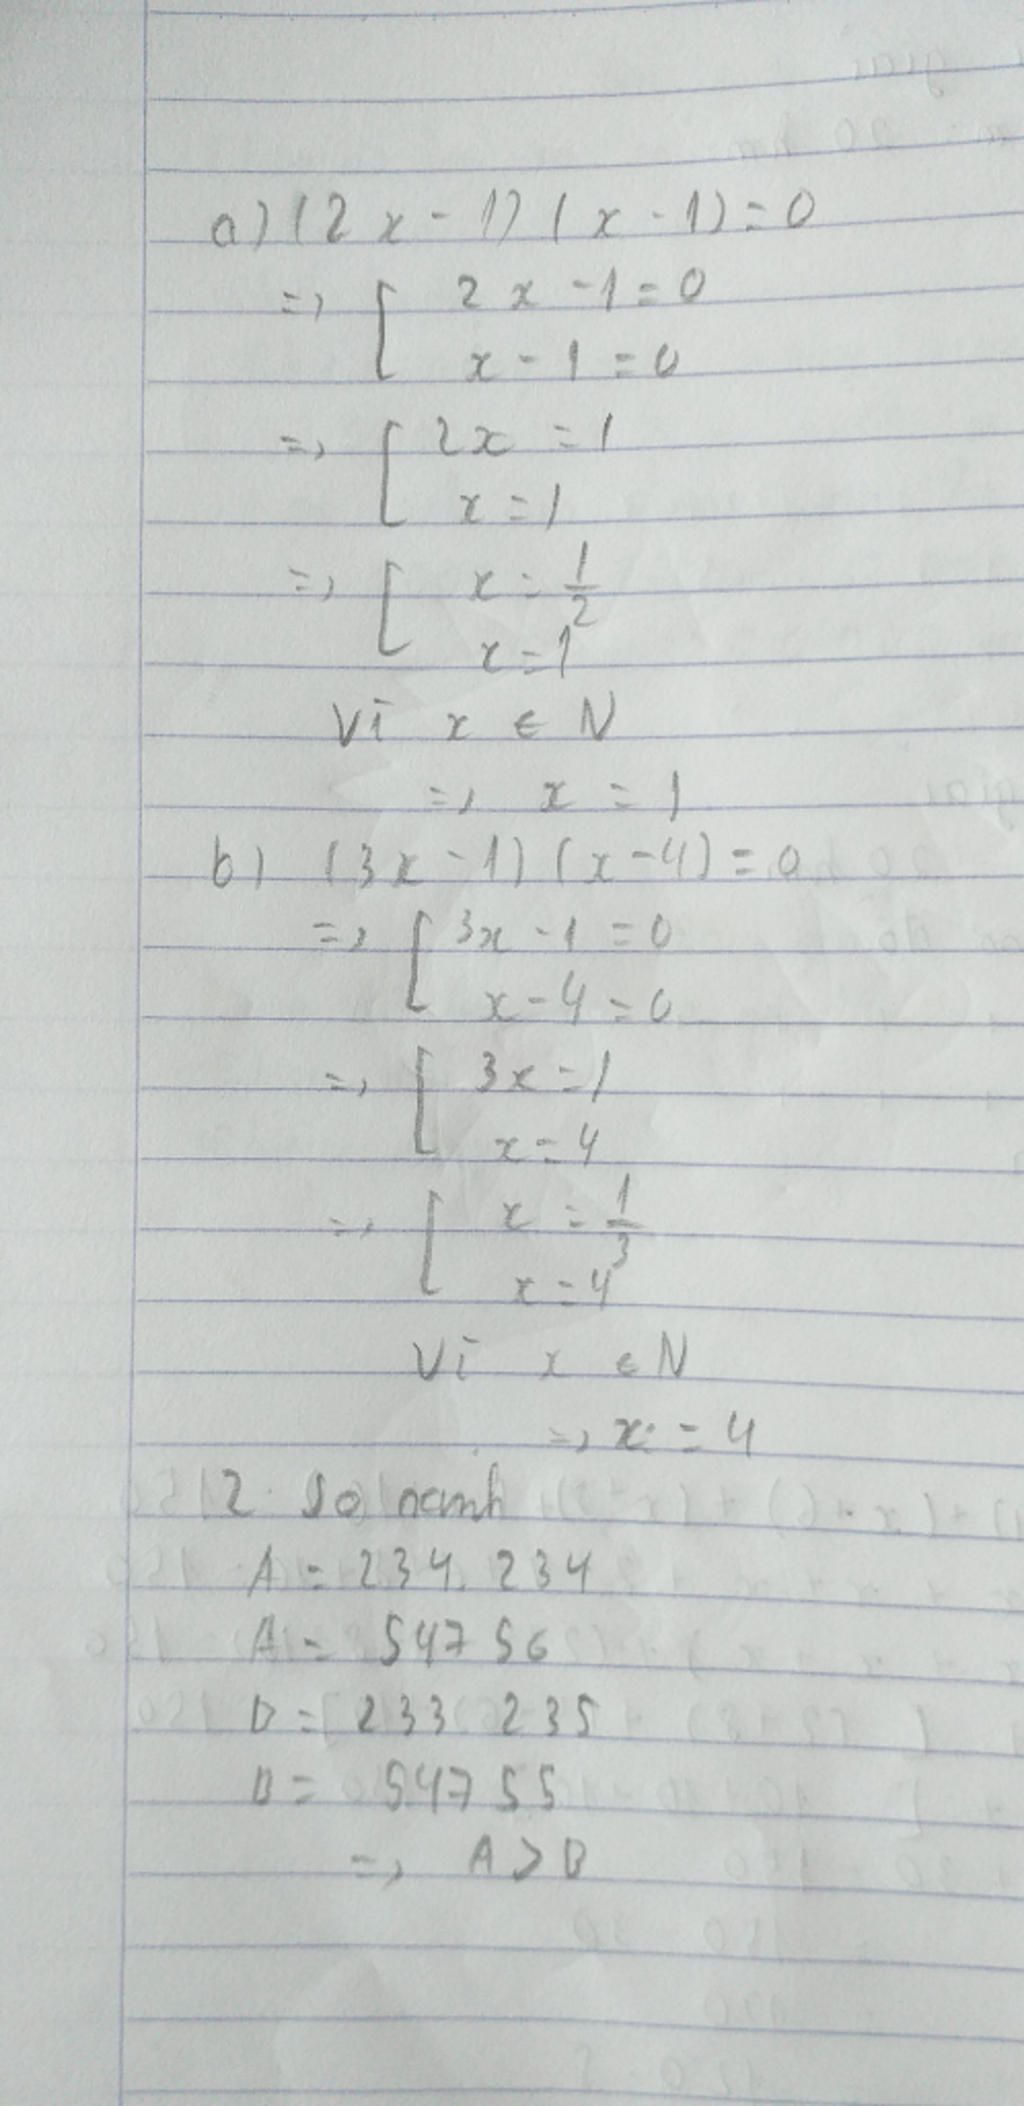 a) (2x - 1) (x - 1) = 0
=> [ 2x - 1 = 0
x - 1 = 0
=> [ 2x = 1
x = 1
=> [ x = 1/2
x = 1
Vì x ∈ N
=> x = 1
b) (3x - 1) (x - 4) = 0
=> [ 3x - 1 = 0
x - 4 = 0
=> [ 3x = 1
x = 4
=> [ x = 1/3
x = 4
Vì x ∈ N
=> x = 4
2. So
A = 234. 234
A = 54756
B = 233 235
B = 54755
=> A > B